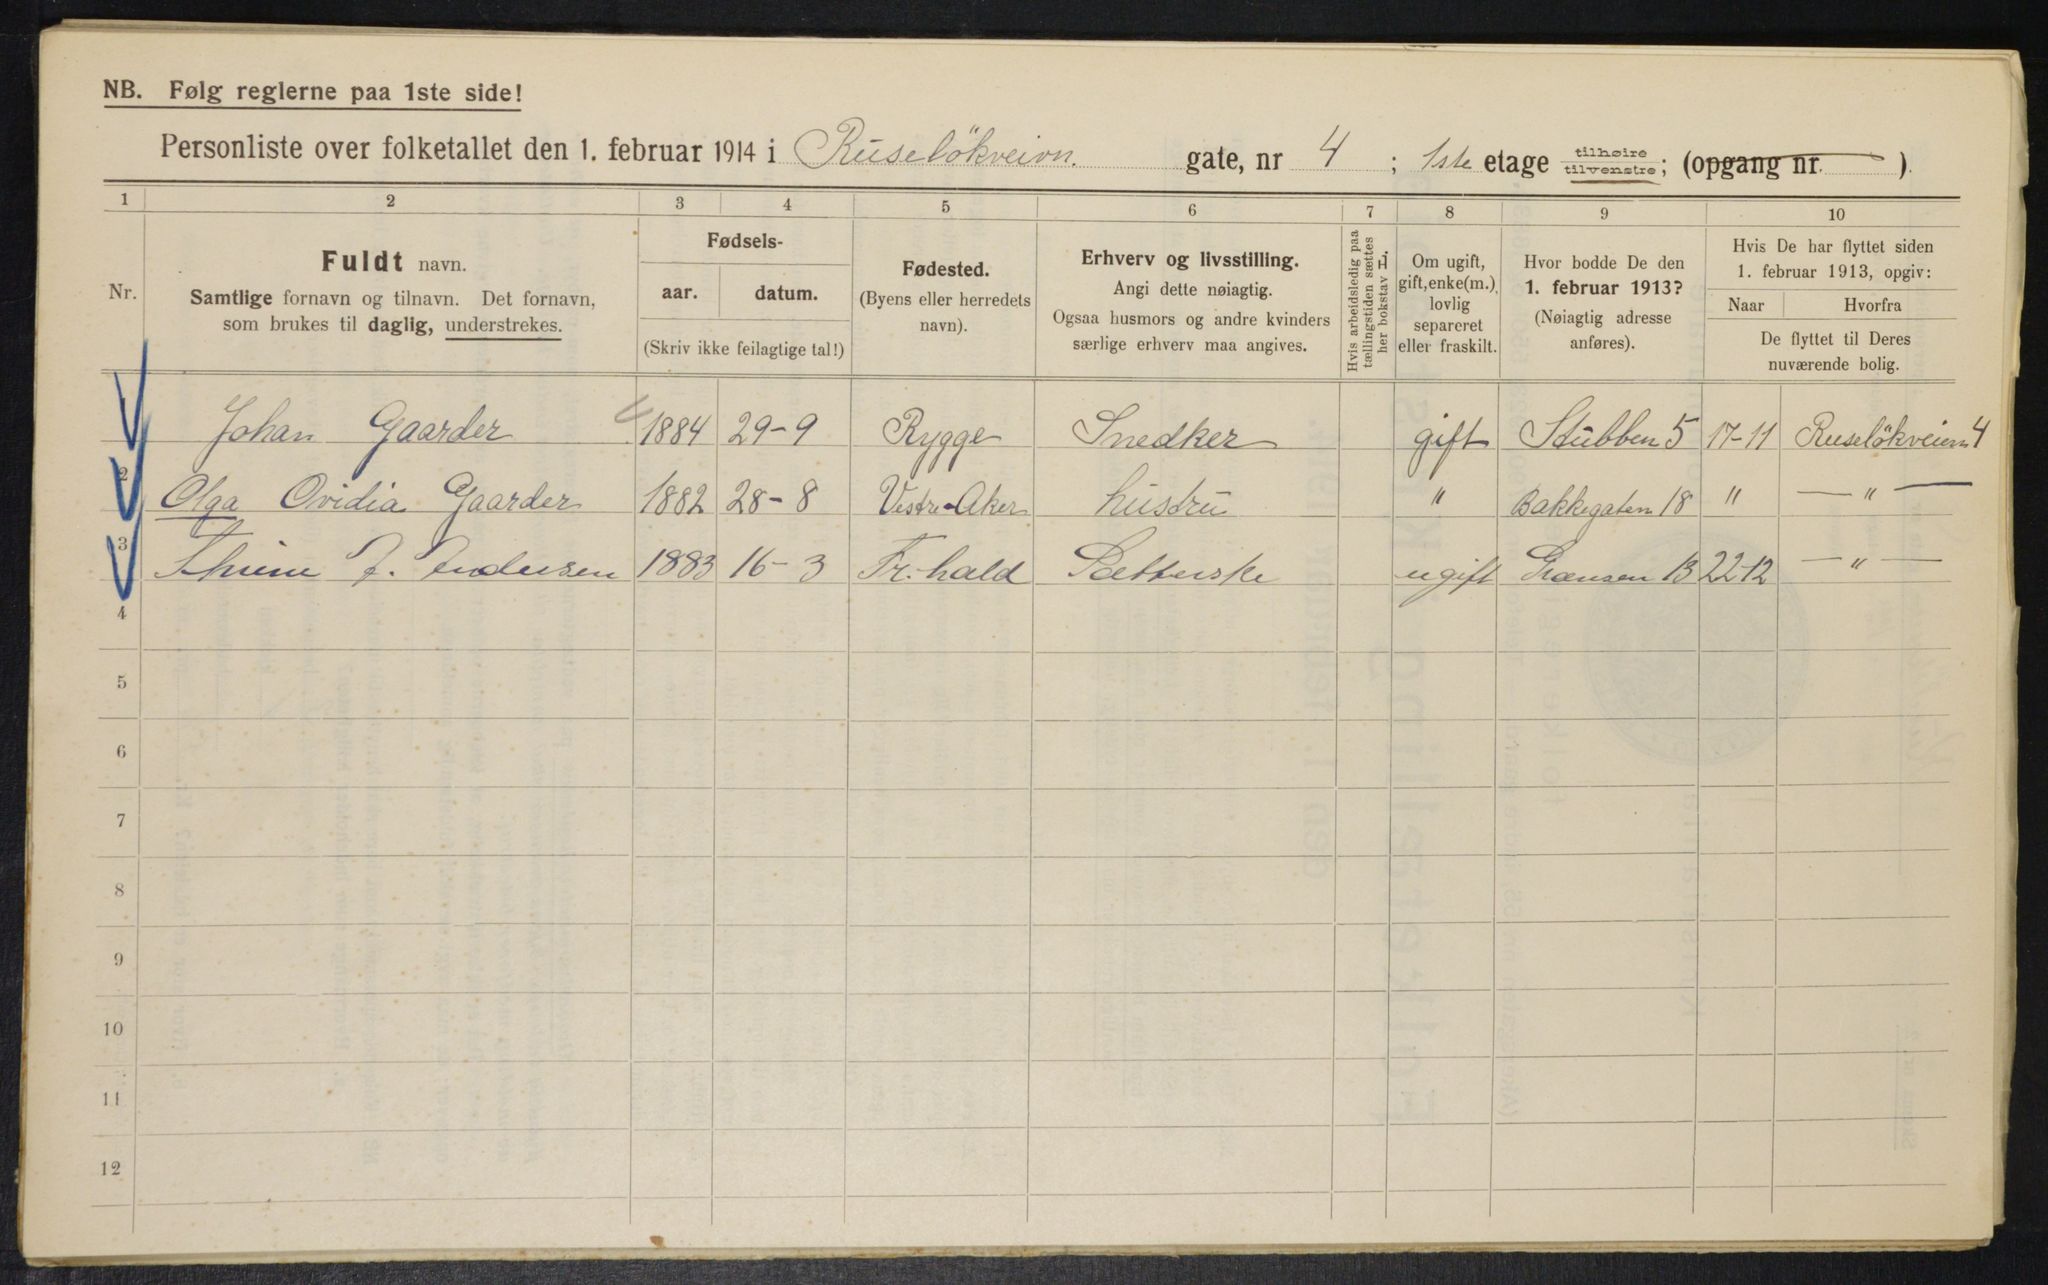 NB. Følg reglerne paa 1ste side!
Personliste over folketallet den 1. februar 1914 i Ruseløkveien. gate, nr 4 ; 1ste etage tilhøire tilvenstre; (opgang nr. ).
1 2 3 4 5 6 7 8 9 10
Nr.
Fuldt navn.
Samtlige fornavn og tilnavn. Det fornavn,
som brukes til daglig, understrekes.
Fødsels-
aar. datum.
(Skriv ikke feilagtige tal!)
Fødested.
(Byens eller herredets
navn).
Erhverv og livsstilling.
Angi dette nøiagtig.
Ogsaa husmors og andre kvinders
særlige erhverv maa angives.
Hvis arbeidsledig paa
tællingstiden sættes
her bokstav L.
Om ugift,
gift, enke(m.),
lovlig
separeret
eller fraskilt.
Hvor bodde De den
1. februar 1913?
(Nøiagtig adresse
anføres).
Hvis De har flyttet siden
1. februar 1913, opgiv:
Naar Hvorfra
De flyttet til Deres
nuværende bolig.
1 Johan Gaarder 1884 29-9 Rygge Snedker gift Stubben 5 17-11 Ruselökveien 4
2 Olga Ovidia Gaarder 1882 28-8 Vestre-Aker hustru " Bakkegaten 18 " — " —
3 A. Andersen 1883 16-3 Fr.hald ugift Grænsen 13 22-12 — " —
4
5
6
7
8
9
10
11
12